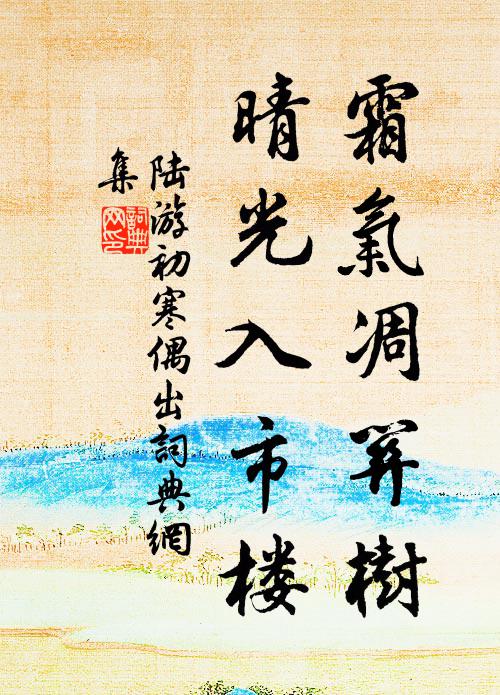 霜氣凋葬樹
晴光入市楼
陆游初寒偶出詞典網
集
詞典
网印